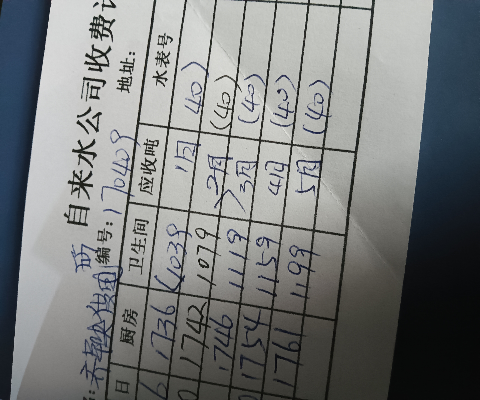 自来水公司收费
编号: 170409 地址:
日 厨房 卫生间 应收吨 水表号
1736 1039 1月 (40)
1742 1079 2月 (40)
1746 1119 3月 (40)
1754 1159 4月 (40)
1761 1199 5月 (40)